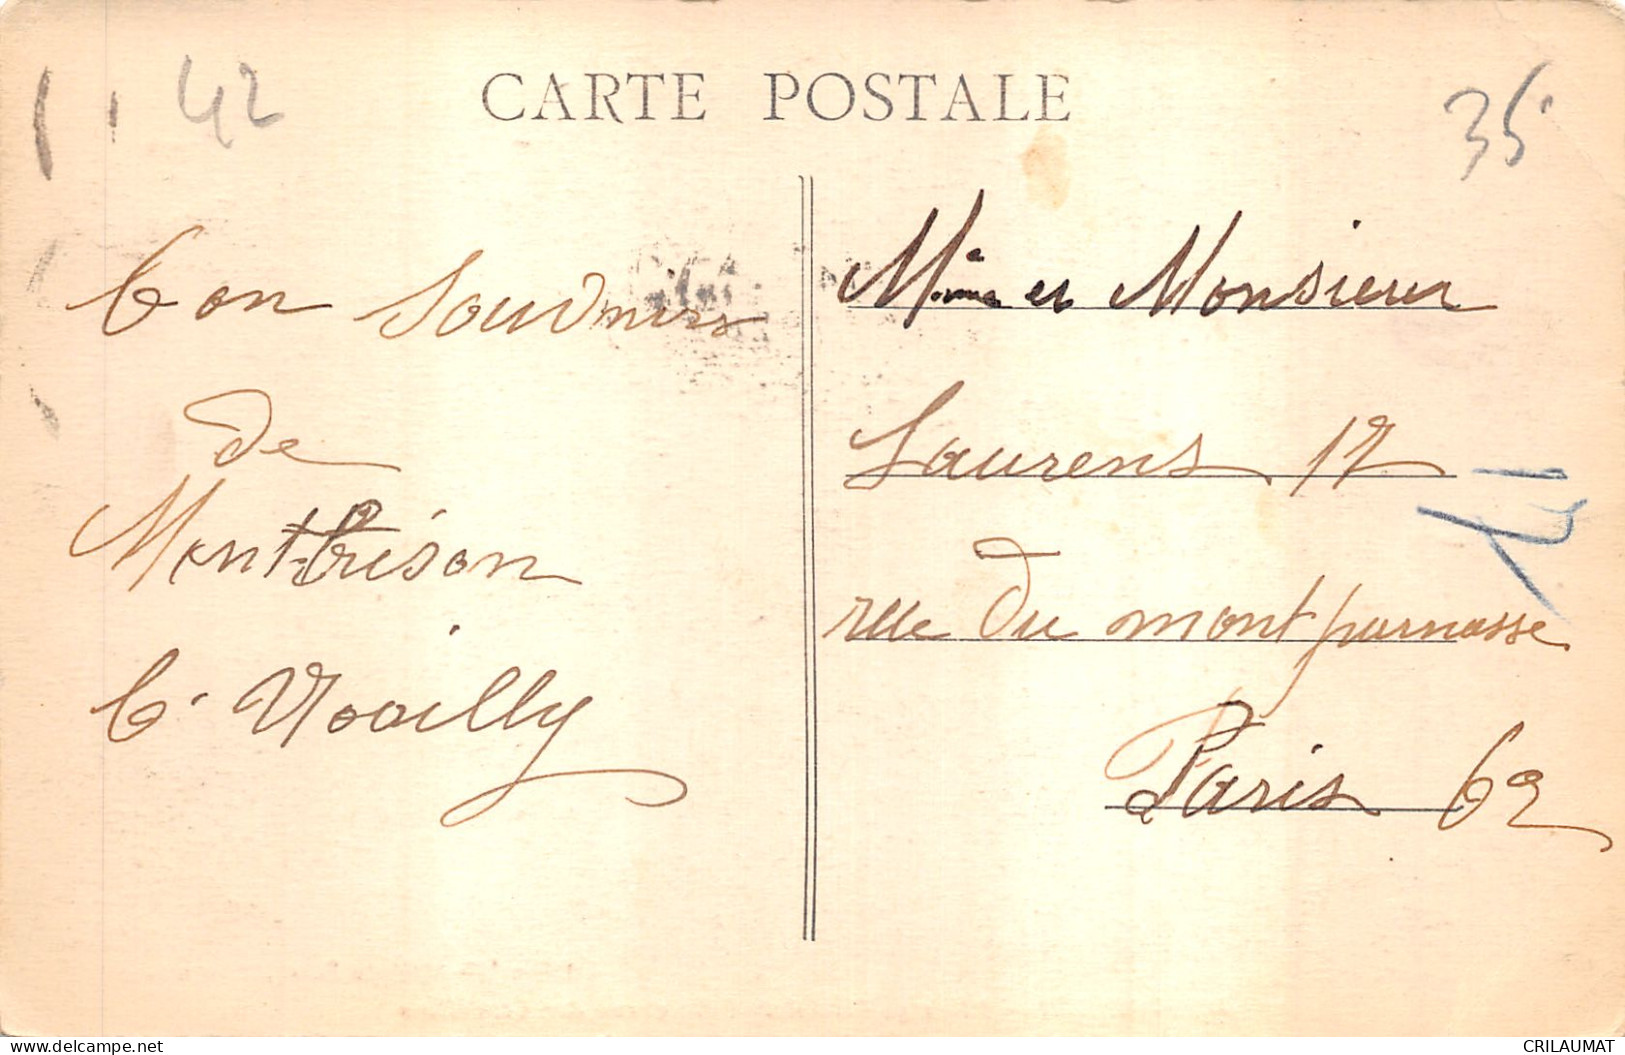 42
CARTE POSTALE
35
bon souvenirs
de
Montbrison
Mme et Monsieur
Laurens 17
rue du montparnasse
Paris 6e
www.delcampe.net
CRILAUMAT